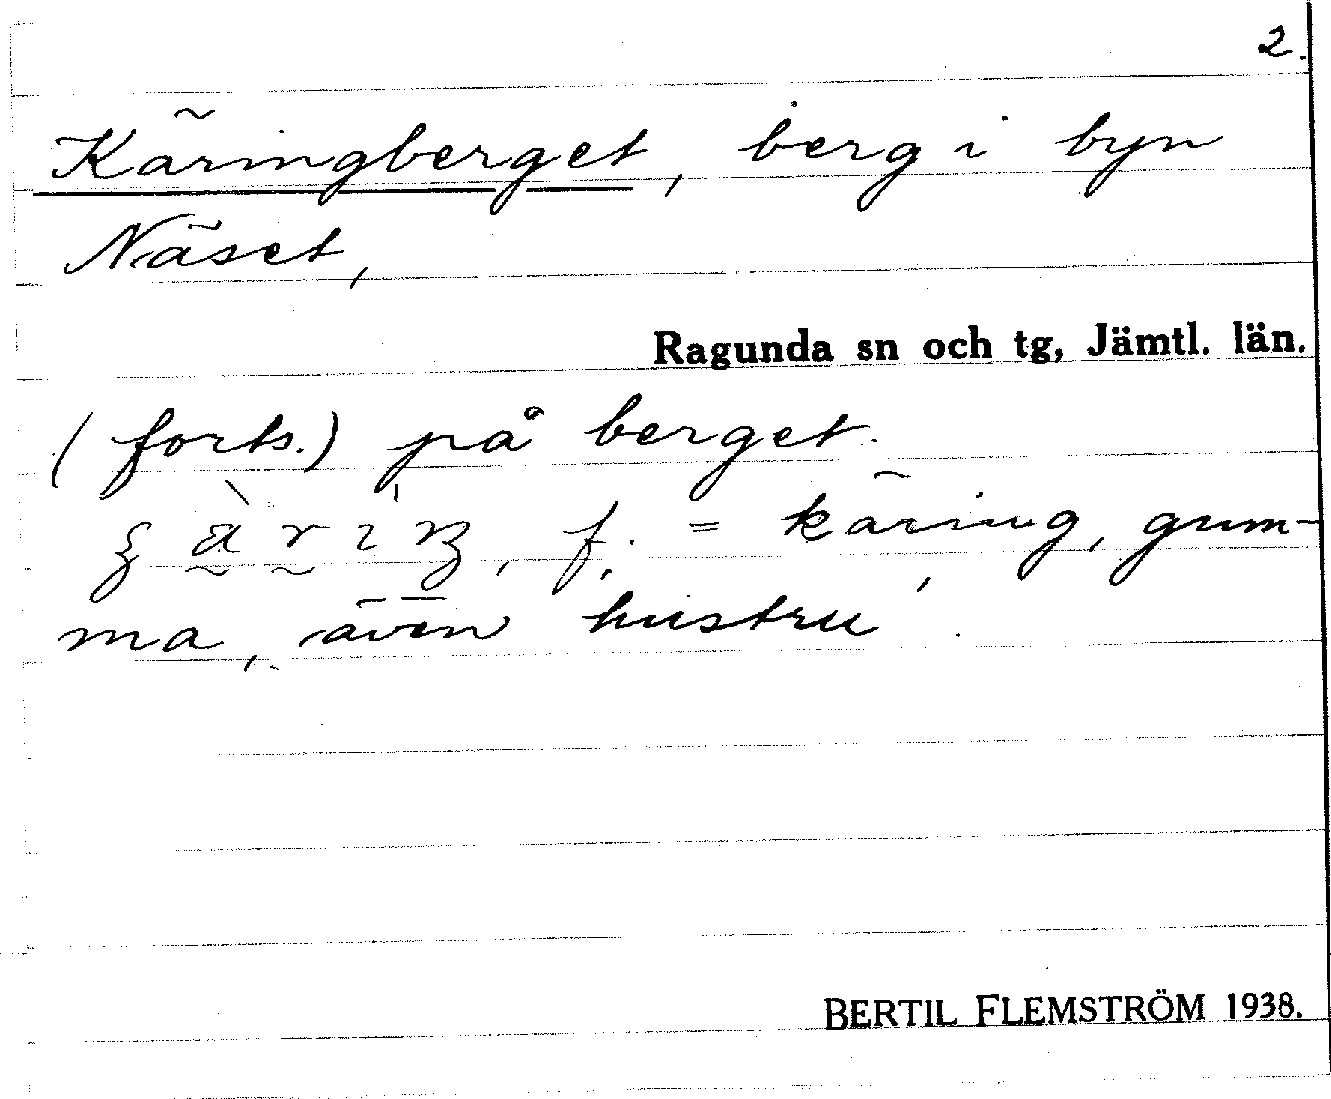 2.
Käringberget, berg i byn
Näset,
Ragunda sn och tg, Jämtl. län.
(forts.) på berget.
f. = käring, gum-
ma, även hustru.
BERTIL FLEMSTRÖM 1938.